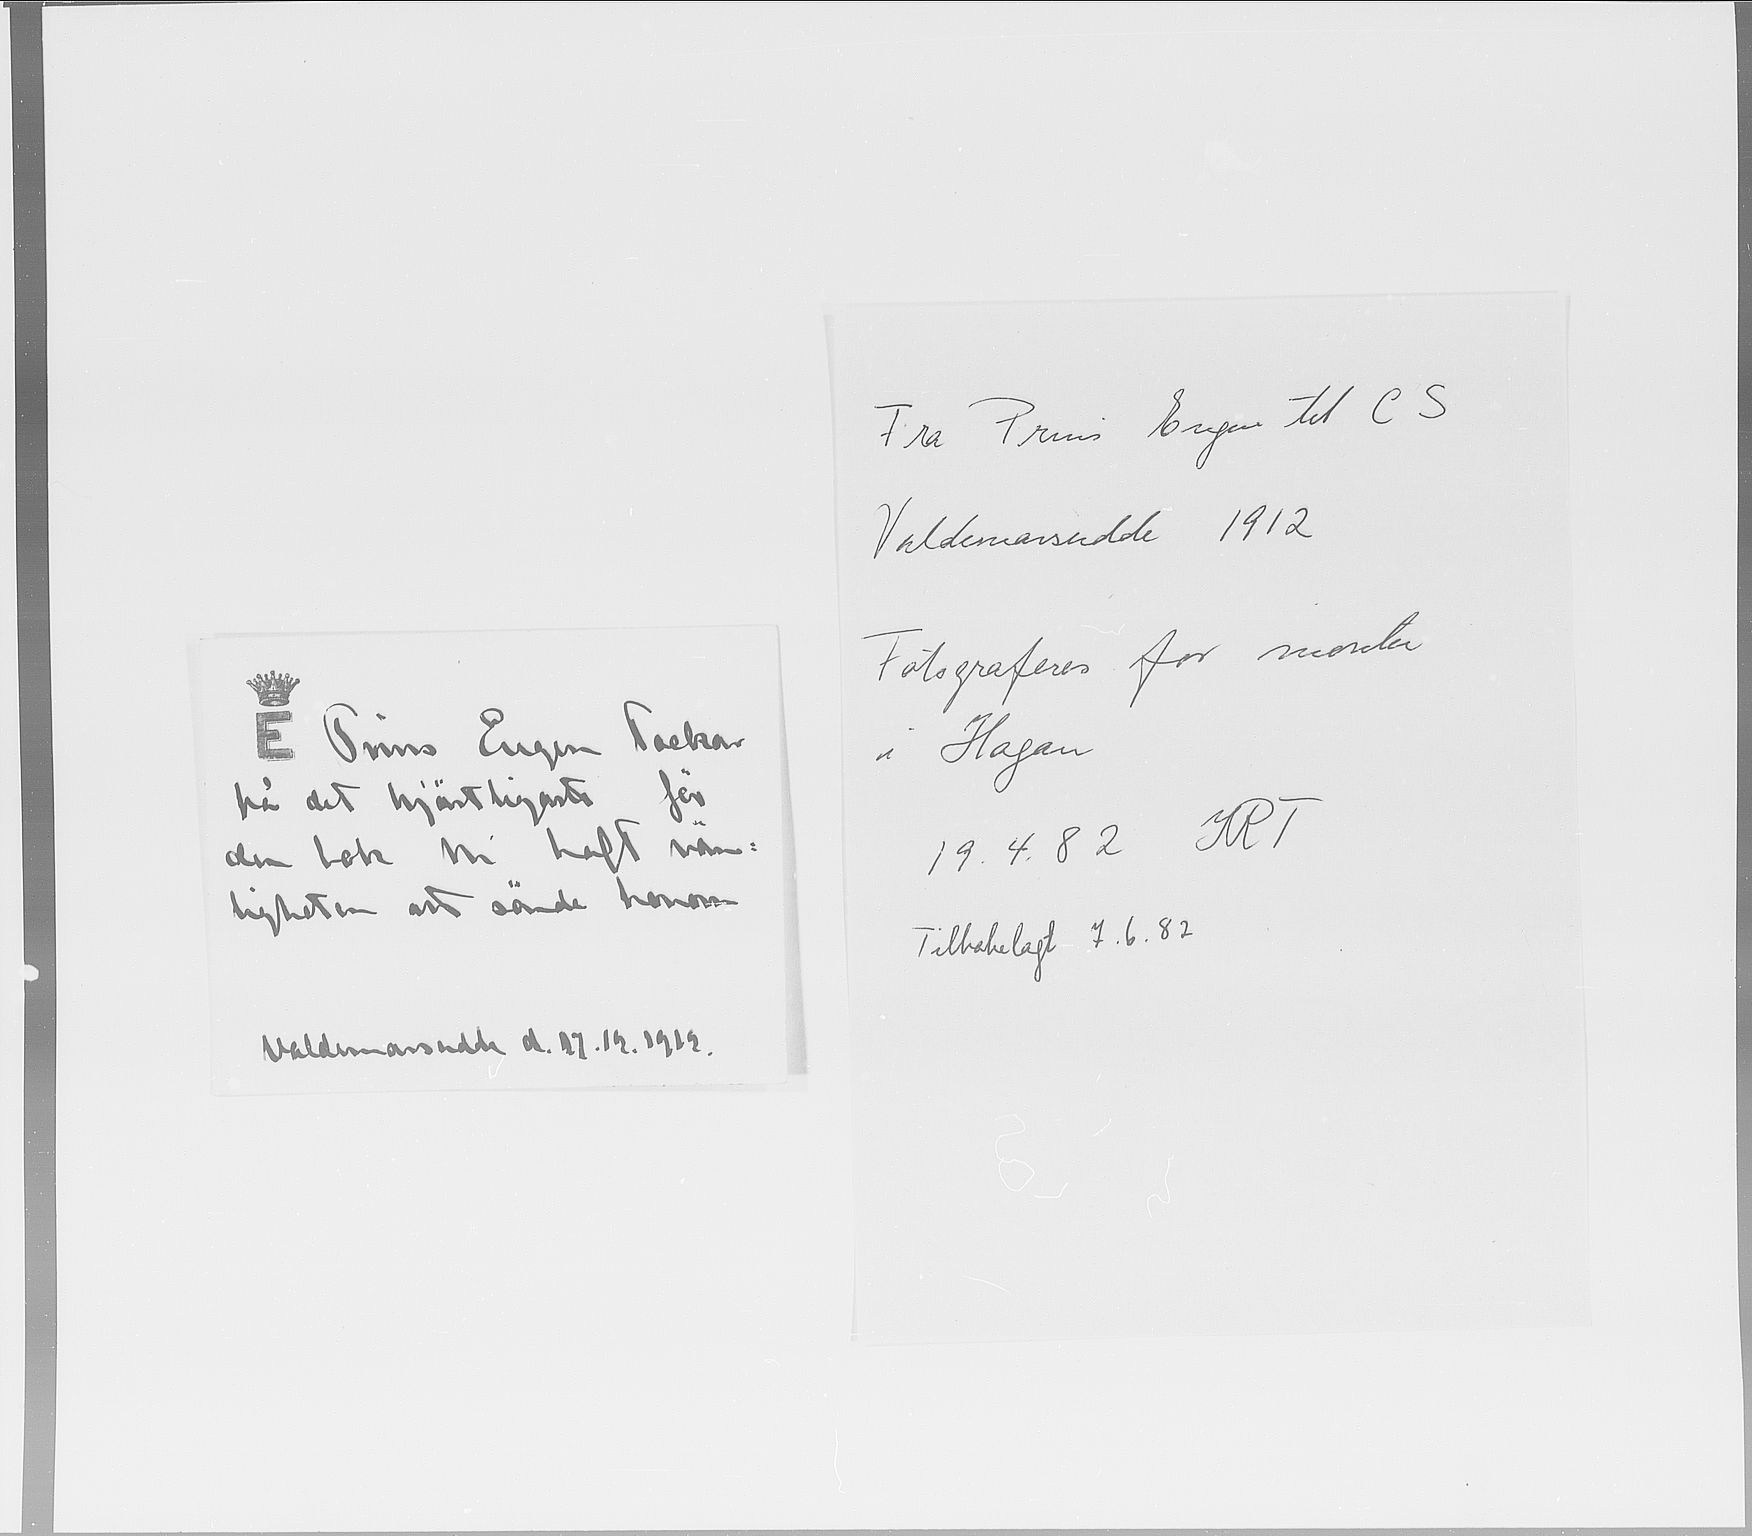 E Prins Eugen tackar
på det hjärtligaste för
den bok Ni haft vän=
ligheten att sända honom
Valdemarsudde d. 17.12.1912.
Fra Prins Eugen til C S
Valdemarsudde 1912
Fotograferes for monter
i Hagan
19.4.82
Tilbakelagt 7.6.82